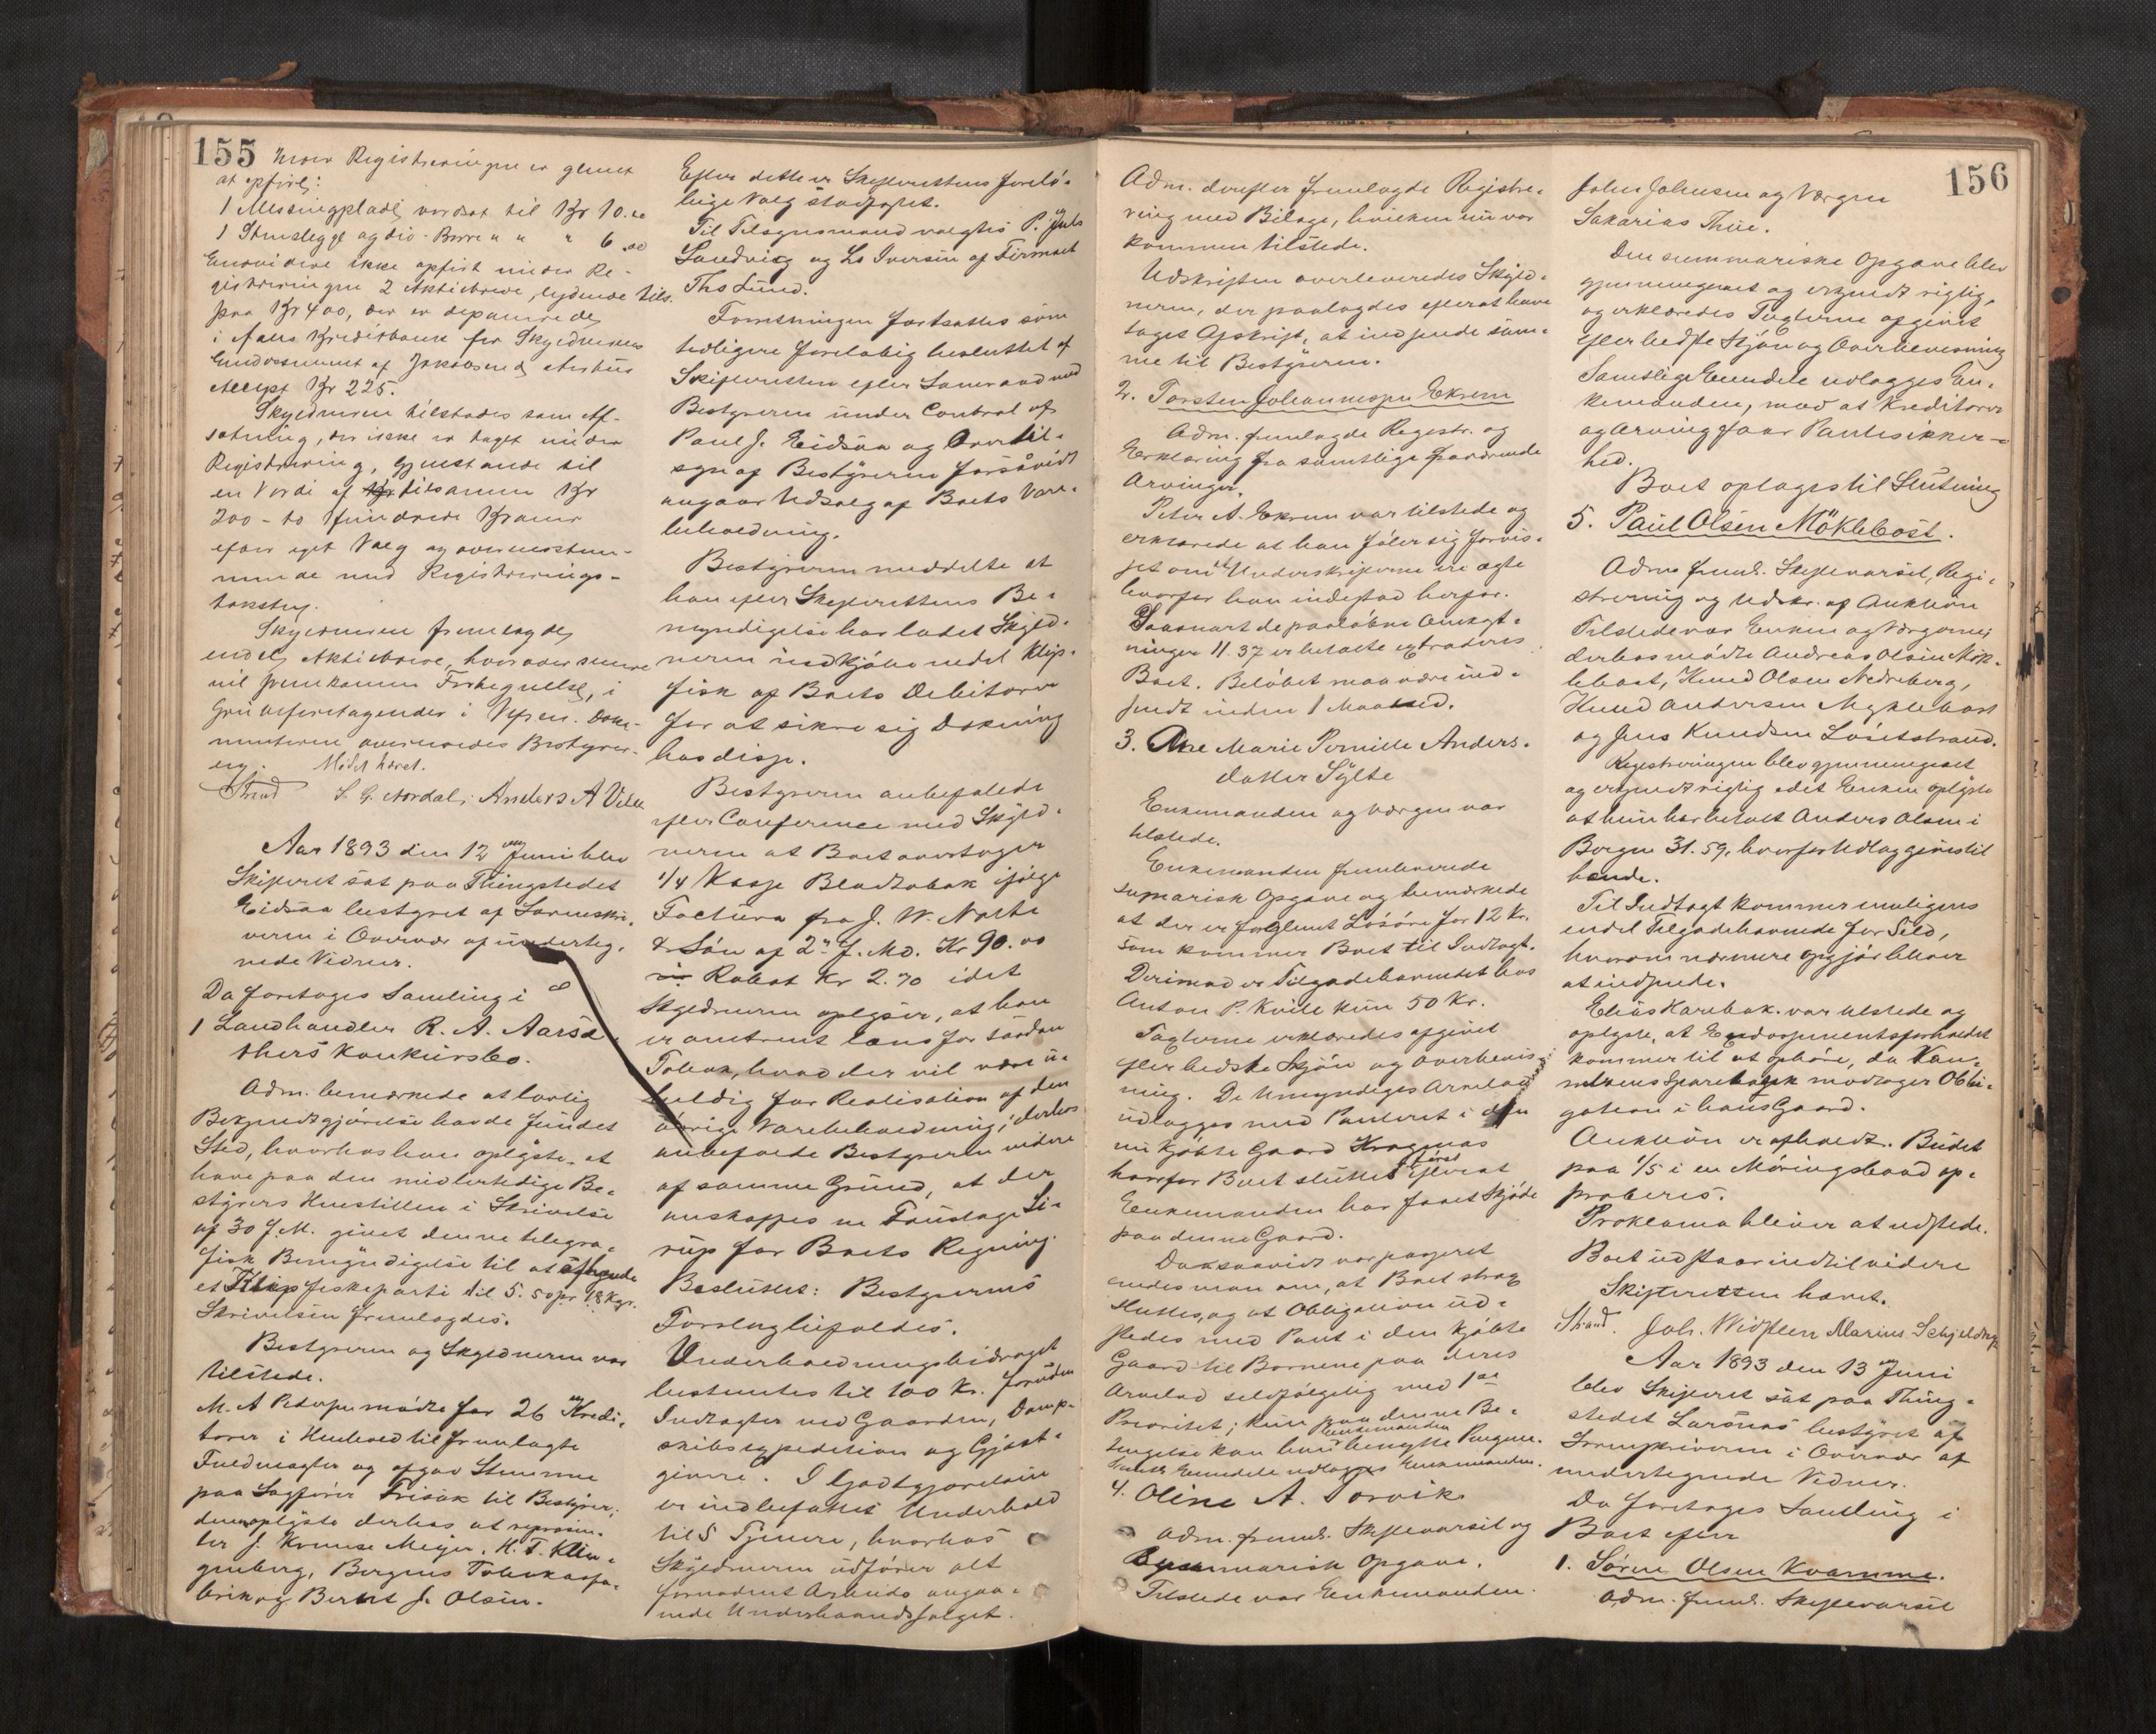 155
under Registreringen er glemt
at opføre:
1 Messingplade værdsat til Kr 10.00
1 Stenslegge og dio - Borre " " " 6.00
Endvidere ikke opført under Re-
gistreringen 2 Aktiebreve, lydende tils.
paa Kr 400, der er deponerede
i Aals Kreditbank for Skyldnerens
Endossement af
Accept Kr 225.
Skyldneren tilstodes som Af-
sætning, der ikke er taget under
Registrering, Gjenstande til
en Værdi af tilsammen Kr
200 - to hundrede Kroner
efter eget Valg og overensstem-
mende med Registrerings-
taksten.
Skyldneren fremlagde
endel Aktiebreve, hvorover senere
vil fremkomme Fortegnelse, i
Grubeforetagender i Vefsen. Doku-
menterne overleveredes Bestyrer-
en. Mødet hævet.
Strand S. G. Nordal, Anders A Velle
Aar 1893 den 12 Juni blev
Skifteret sat paa Thingstedet
Eidsaa bestyret af Sorenskri-
veren i Overvær af underteg-
nede Vidner.
Da foretoges Samling i
1 Landhandler R. A. Aarse-
thers Konkursbo.
Adm. bemærkede at lovlig
Bekjendtgjørelse havde fundet
Sted, hvorhos han oplyste, at
have paa den midlertidige Be-
styrers Henstillen i Skrivelse
af 30 f. M. givet denne telegra-
fisk Bemyndigelse til at afhænde
et Klipfiskeparti til 5.50 pr 18 Kgr.
Skrivelsen fremlagdes.
Bestyreren og Skyldneren var
tilstede.
M. A Petersen mødte for 26 Kredi-
torer i Henhold til fremlagte
Fuldmagter og afgav Stemme
paa Sagfører Frisak til Bestyrer,
denne oplyste derhos at repræsen-
ter J. Krouse Meyer, H. T. Klin-
genberg, Bergens Tobaksfa-
brik og Bernt J. Olsen.
Efter dette er Skifterettens foreløb-
bige Valg stadfæstet.
Til Tilsynsmænd valgtes P. Juls
Sandvig og Ls Iversen af Firmaet
Ths Lund.
Forretningen fortsættes som
tidligere foreløbig besluttet af
Skifteretten efter Samraad med
Bestyreren under Control af
Paul J. Eidsaa og Overtil-
syn af Bestyreren forsåvidt
angaar Udsalg af Boets Vare-
beholdning.
Bestyreren meddelte at
han efter Skifterettens Be-
myndigelse har ladet Skyld-
neren indkjøbe endel Klip-
fisk af Boets Debitorer
for at sikre sig Dækning
hos disse.
Bestyreren anbefalede
efter Conference med Skyld-
neren at Boet overtager
1/4 Kasse Bladtobak ifølge
Factura fra J. W. Narte
& Søn af 2den f. Md. Kr 90.00
Rabat Kr 2.70 idet
Skyldneren oplyser, at han
er omtrent læns for sådan
Tobak, hvad der vil være u-
heldig for Realisation af den
øvrige Varebeholdning; derhos
anbefalede Bestyreren videre
af samme Grund, at der
anskaffes en Fustage Si-
rup for Boets Regning.
Besluttet: Bestyrerens
Forslag bifaldes.
Underholdningsbidraget
bestemtes til 100 Kr. foruden
Indtægter ved Gaarden, Damp-
skibsexpedition og Gjæst-
giveri. I Godtgjørelsen
er indbefattet Underhold
til 5 Tjenere, hvorhos
Skyldneren udfører alt
fornødent Arbeide angaa-
ende Underhaandsalget.
156
Adm. derefter fremlagde Registre-
ring med Bilage, hvilken nu var
kommen tilstede.
Udskriften overleveredes Skyld-
neren, der paalagdes efterat have
taget Afskrift, at indsende sam-
me til Bestyreren.
2. Torsten Johannesen Ekrem
Adm. fremlagde Registr. og
Erklæring fra samtlige fraværende
Arvinger.
Peter A. Ekrem var tilstede og
erklærede at han føler sig forvis-
set om at Underskrifterne ere ægte
hvorfor han indestod herfor.
Saasnart de paaløbne Omkost-
ninger 11.37 er betalte extraderes
Boet. Beløbet maa være ind-
sendt inden 1 Maaned.
3. Ane Marie Pernille Anders-
datter Sylte
Enkemanden og Værgen var
tilstede.
Enkemanden fremleverede
summarisk Opgave og bemærkede
at der er forglemt Løsøre for 12 Kr.
som kommer Boet til Indtægt.
Derimod er Tilgodehavendet hos
Anton P. Kvile kun 50 Kr.
Taxterne erklæredes afgivet
efter bedste Skjøn og Overbevis-
ning. De Umyndiges Arvelod
udlægges med Panteret i den
nu kjøbte Gaard Kragenæs
hvorfor Boet sluttes først efterat
Enkemanden har faaet Skjøde
paa denne Gaard.
Da saavidt var passeret
enedes man om, at Boet strax
sluttes, og at Obligation ud-
stedes med Pant i den kjøbte
Gaard til Børnene paa deres
Arvelod selvfølgelig med 1ste
Prioritet; kun paa denne Be-
tingelse kan Enkemanden benytte Pengene.
Samtl. Eiendele udlægges Enkemanden.
4. Oline A. Torvik
Adm. freml. Skiftevarsel og
Summarisk Opgave.
Tilstede var Enkemanden
John Johnsen og Værgen
Sakarias Thue.
Den summariske Opgave blev
gjennemgaaet og erkjendt rigtig,
og erklæredes Taxterne afgivet
efter bedste Skjøn og Overbevisning
Samtlige Eiendele udlægges En-
kemanden, mod at Kreditorer
og Arving faar Pantesikker-
hed.
Boet optages til Slutning
5. Paul Olsen Möklebost.
Adm freml. Skiftevarsel, Regi-
strering og Udskr. af Auktion
Tilstede var Enken og Værgerne;
derhos mødte Andreas Olsen Mök-
lebost, Knud Olsen Nedreberg,
Knud Andersen Myklebost
og Jens Knudsen Løsetstrand.
Registreringen blev gjennemgaaet
og erkjendt rigtig idet Enken oplyste
at hun har betalt Anders Olsen i
Bergen 31.59, hvorfor Udlæg gives til
hende.
Til Indtægt kommer muligens
endel Tilgodehavende for Sild,
hvorom nærmere Opgjør bliver
at indsende.
Elias Harebak. var tilstede og
oplyste, at Endossementsforholdet
kommer til at ophøre, da Van-
elvens Sparebank modtager Obli-
gation i hans Gaard.
Auktion er afholdt. Budet
paa 1/5 i en Møringsbaad ap-
proberes.
Proklama bliver at udstede.
Boet udstaar indtil videre
Skifteretten hævet.
Strand. Joh. Widsteen Marius Schjelderup
Aar 1893 den 13 Juni
blev Skifteret sat paa Thing-
stedet Larsnes bestyret af
Sorenskriveren i Overvær af
undertegnede Vidner.
Da foretoges Samling i
Boet efter
1. Søren Olsen Kvamme.
Adm. freml. Skiftevarsel